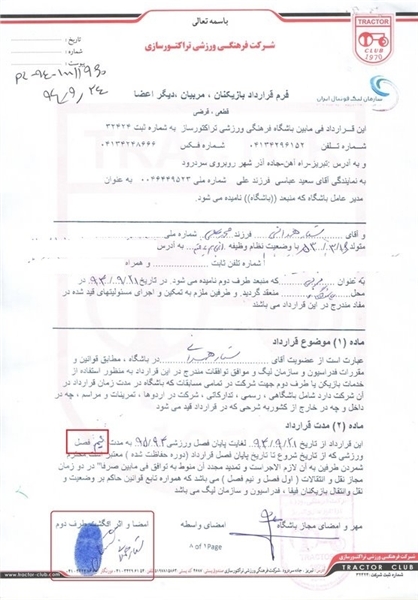 باسمه تعالی
TRACTOR
CLUB
1970
شرکت فرهنگی ورزشی تراکتورسازی
تاریخ :
شماره :
پیوست :
سازمان لیگ فوتبال ایران
فرم قرارداد بازیکنان ، مربیان ،دیگر اعضا
قطعی ، قرضی
این قرارداد فی مابین باشگاه فرهنگی ورزشی تراکتورساز به شماره ثبت ۳۲۴۲۴
شماره تلفن ۰۴۱۳۴۲۹۶۱۵۲ شماره فکس ۰۴۱۳۴۲۴۸۶۶۶
و به آدرس :تبریز-راه آهن-جاده آذر شهر روبروی سردرود
به نمایندگی آقای سعید عباسی فرزند علی شماره ملی ۰۰۴۶۴۴۹۵۲۳ به عنوان
مدیر عامل باشگاه که منبعد ((باشگاه)) نامیده می شود.
و آقای فرزند شماره ملی
متولد با وضعیت نظام وظیفه به آدرس
شماره تلفن ثابت و همراه
به عنوان که منبعد طرف دوم نامیده می شود. در تاریخ ۹۳/۹/۲۱ در
محل منعقد گردید. و طرفین ملزم به تمکین و اجرای مسئولیتهای قید شده در
مفاد مندرج در این قرارداد می باشند
ماده (۱) موضوع قرارداد
عبارت است از عضویت آقای در باشگاه ، مطابق قوانین و
مقررات فدراسیون و سازمان لیگ و موافق توافقات مندرج در این قرارداد به منظور استفاده از
خدمات بازیکن یا طرف دوم جهت شرکت در تمامی مسابقات که باشگاه در مدت زمان قرارداد در
آن شرکت دارد شامل باشگاهی ، رسمی ، تدارکاتی ، شرکت در اردوها ، تمرینات و مراسم ، چه در
داخل و چه در خارج از کشوربه شرحی که در قرارداد قید می شود
ماده (۲) مدت قرارداد
این قرارداد از تاریخ ۹۳/۹/۲۱ لغایت پایان فصل ورزشی به مدت نیم فصل
ورزشی که از تاریخ شروع تا تاریخ پایان فصل قرارداد (دوره حفاظت شده ) معتبر است
شمردن طرفین به آن لازم الاجراست و تمدید مجدد آن منوط به توافق فی مابین صرفا" در دو زمان
مجاز نقل و انتقالات ( اول فصل و نیم فصل ) می باشد که همواره تابع قوانین حاکم بر وضعیت و
نقل و انتقال بازیکنان فیفا ، فدراسیون و سازمان لیگ می باشد
مهر و امضای مجاز باشگاه امضای واسطه امضا و اثر انگشت طرف دوم
۸ of ۱Page
شرکت فرهنگی ورزشی تراکتورسازی
TRACTOR CLUB
www.tractor-club.com